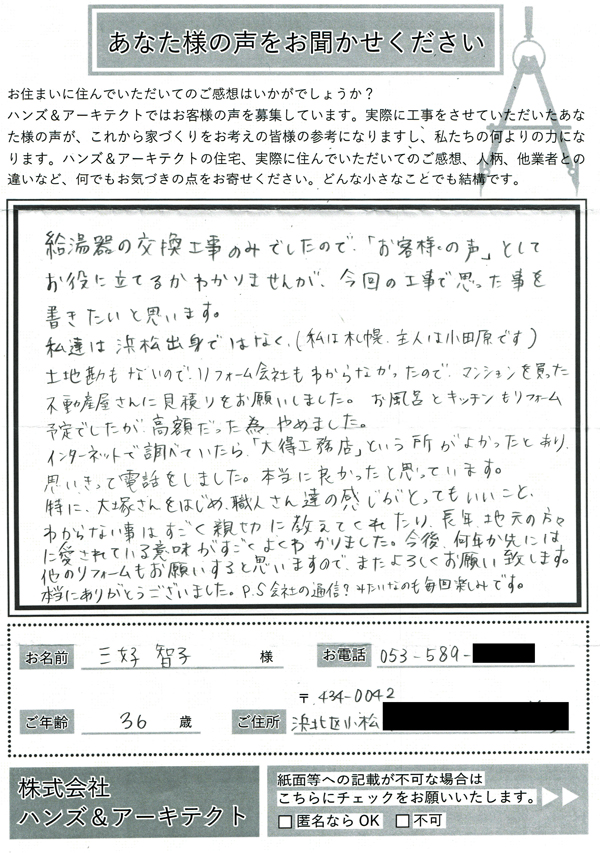 あなた様の声をお聞かせください
お住まいに住んでいただいてのご感想はいかがでしょうか？
ハンズ＆アーキテクトではお客様の声を募集しています。実際に工事をさせていただいたあな
た様の声が、これから家づくりをお考えの皆様の参考になりますし、私たちの何よりの力にな
ります。ハンズ＆アーキテクトの住宅、実際に住んでいただいてのご感想、人柄、他業者との
違いなど、何でもお気づきの点をお寄せください。どんな小さなことでも結構です。
給湯器の交換工事のみでしたので、「お客様の声」として
お役に立てるかわかりませんが、今回の工事で思った事を
書きたいと思います。
私達は浜松出身ではなく、(私は札幌、主人は小田原です)
土地勘もないので、リフォーム会社もわからなかったので、マンションを買った
不動産屋さんに見積りをお願いしました。お風呂とキッチンもリフォーム
予定でしたが、高額だった為、やめました。
インターネットで調べていたら、「大得工務店」という所がよかったとあり、
思いきって電話をしました。本当に良かったと思っています。
特に、大塚さんをはじめ、職人さん達の感じがとってもいいこと、
わからない事はすごく親切に教えてくれたり、長年、地元の方々
に愛されている意味がすごくよくわかりました。今後、何年か先には
他のリフォームもお願いすると思いますので、またよろしくお願い致します。
本当にありがとうございました。P.S会社の通信？みたいなのも毎回楽しみです。
お名前 三好 智子 様 お電話 053-589-
〒434-0042
ご年齢 36 歳 ご住所 浜北区小松
株式会社
ハンズ＆アーキテクト
紙面等への記載が不可な場合は
こちらにチェックをお願いいたします。
□ 匿名なら OK □ 不可